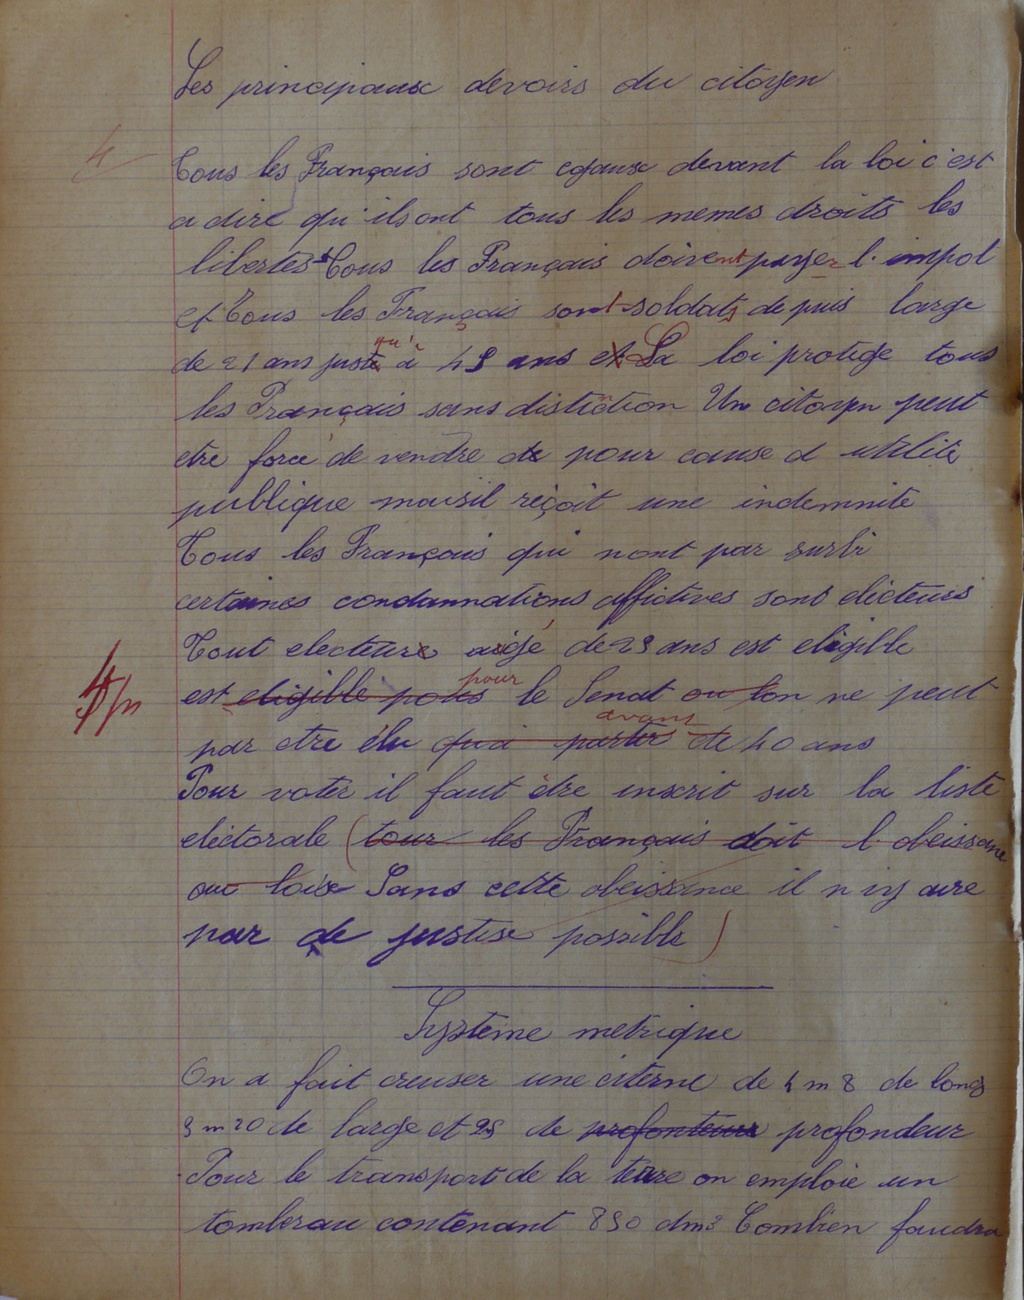 Les principaux devoirs du citoyen
4
Tous les Français sont egaux devant la loi c'est
a dire qu'ils ont tous les memes droits les
libertés Tous les Français doivent payer l'impot
et Tous les Français sont soldats depuis large
de 21 ans justè qu'à 45 ans et La loi protège tous
les Français sans distinction Un citoyen peut
etre forcé de vendre de pour cause d utilité
publique mais il reçoit une indemnité
Tous les Français qui nont par surbi
certaines condamnations afflictives sont electeurs
Tout electeur aigé de 25 ans est eligible
4 1/2
est eligible potes pour le Senat ou lon ne peut
par etre élu qu'a partir avant de 40 ans
Pour voter il faut être inscrit sur la liste
electorale (tour les Français doit l obeissane
aux loix Sans cette obeissance il n iy aure
par de justise possible)
Système metrique
On a fait creuser une citerne de 4 m 8 de long
3 m 20 de large et 25 de profonteur profondeur
Pour le transport de la terre on emploie un
tombereau contenant 850 dm3 Combien faudra